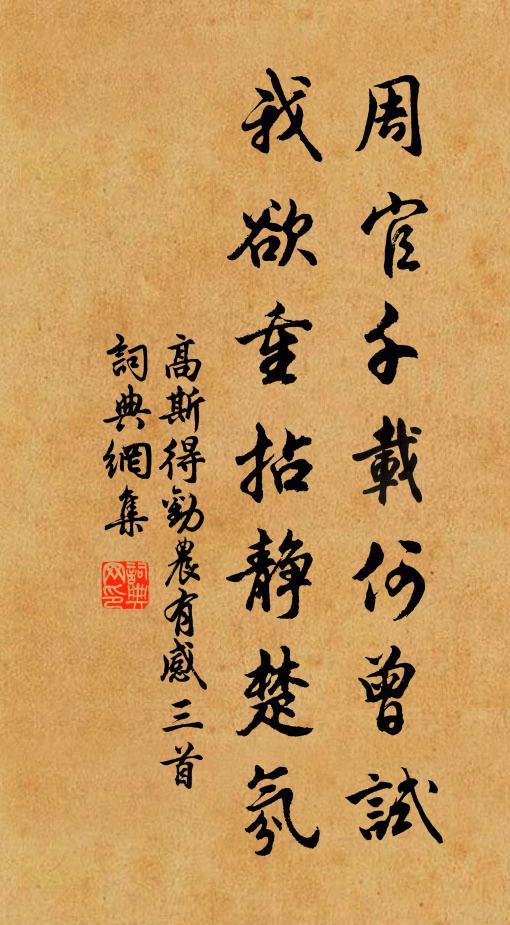 周官千載何曾試
我欲重拈静楚氛
高斯得勸農有感三首
詞典網集
詞典网印